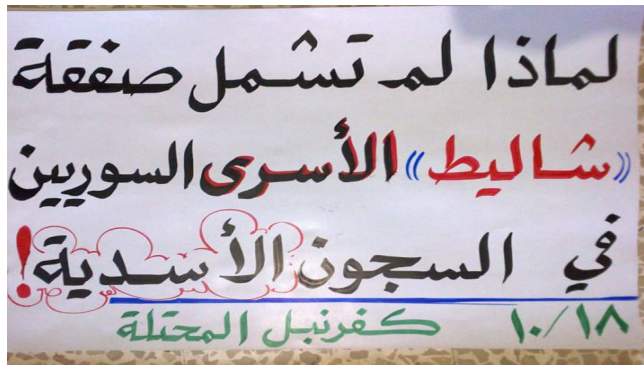 لماذا لم تشمل صفقة
«شاليط» الأسرى السوريين
في السجون الأسدية!
١٠/١٨ كفرنبل المحتلة